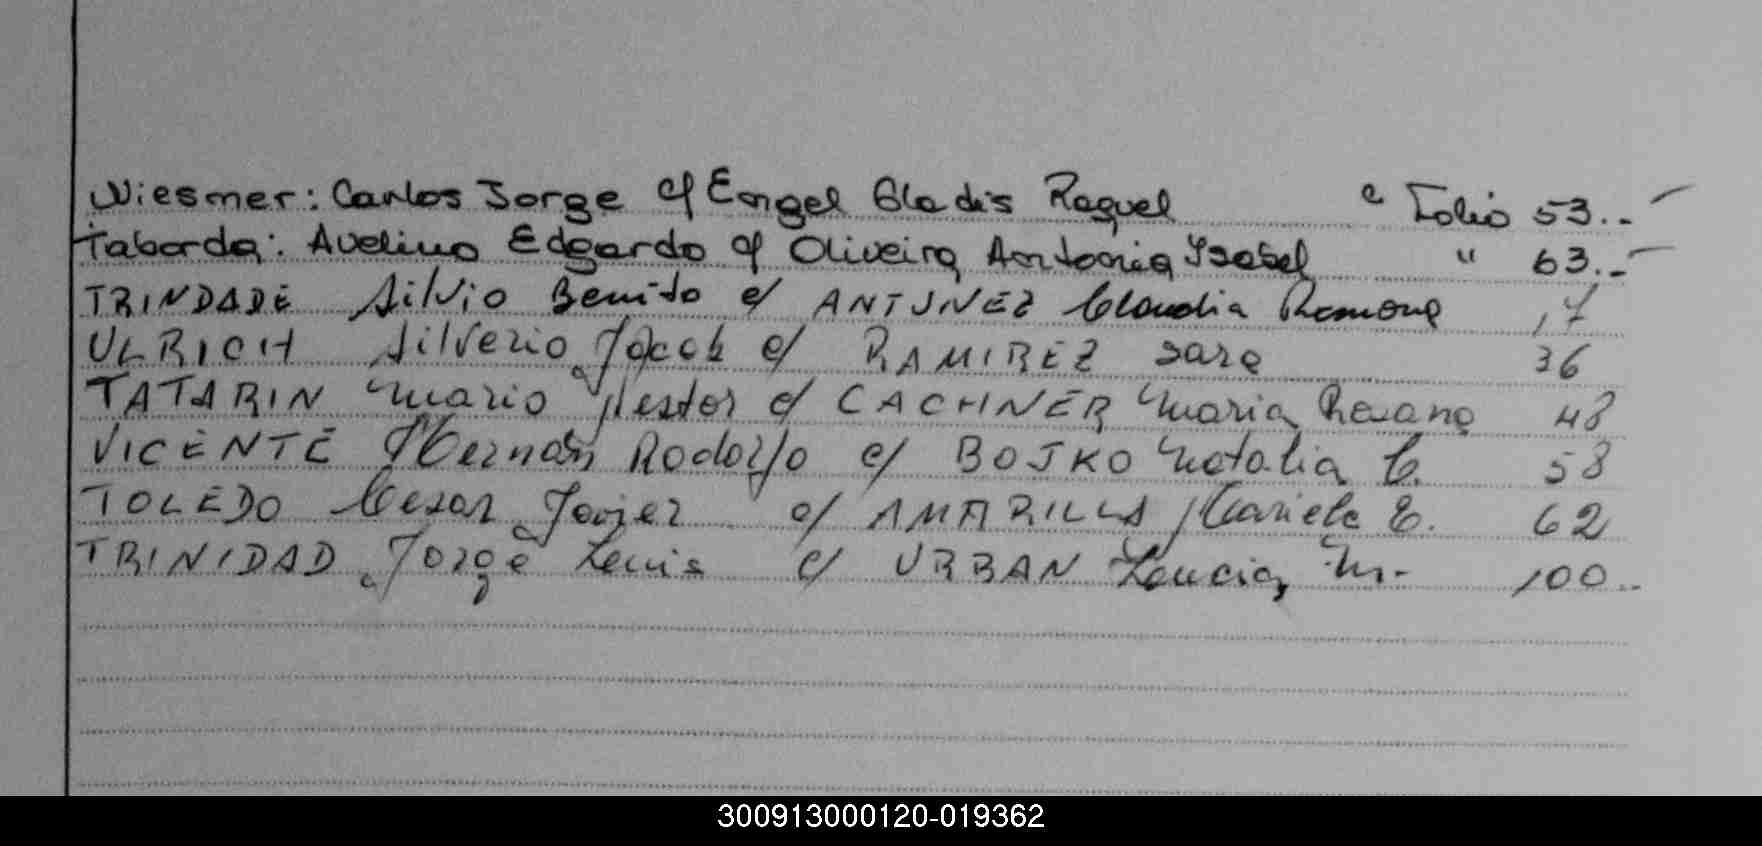 Wiesmer: Carlos Jorge c/ Engel Gladis Raquel " Folio 53..-
Taborda: Avelino Edgardo c/ Oliveira Antonia Ysabel " 63..-
TRINDADE Silvio Benito c/ ANTUNEZ Claudia Ramona 17
ULRICH Silverio Jacob c/ RAMIREZ Sara 36
TATARIN Mario Nestor c/ CACHNER Maria Rosana 48
VICENTE Hernan Rodolfo c/ BOJKO Natalia C. 58
TOLEDO Cesar Javier c/ AMARILLA Mariela E. 62
TRINIDAD Jorge Luis c/ URBAN Leucia, M.- 100..
300913000120-019362